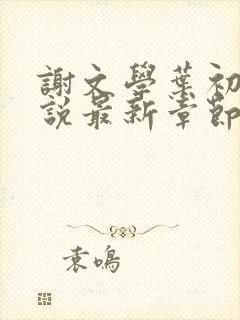 謝文學葉初
說最新章節
袁鳴